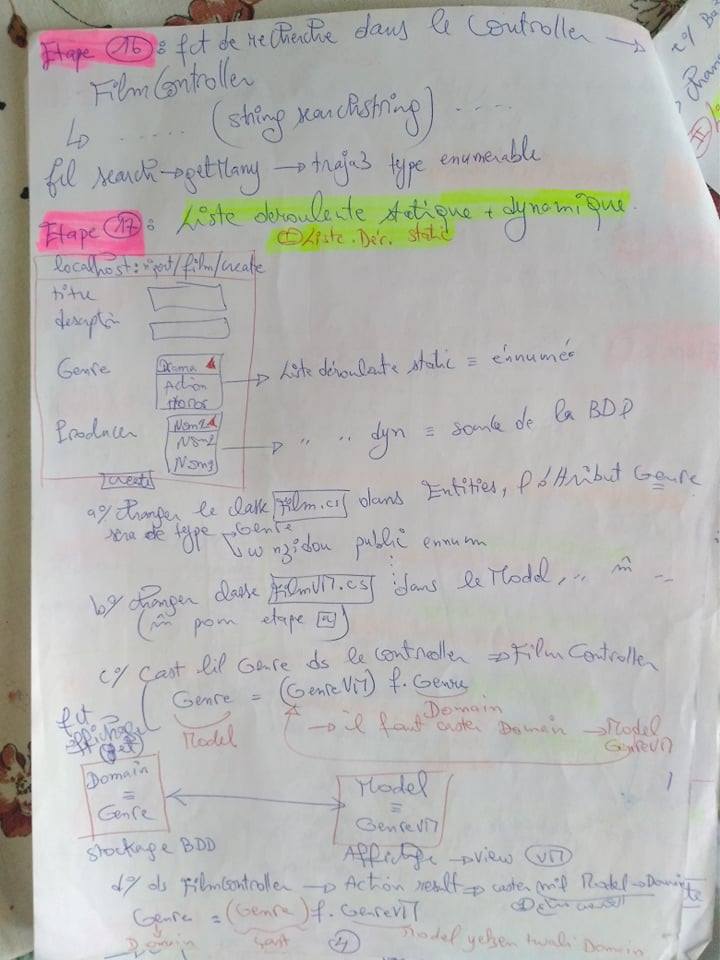 Etape 16 : fct de recherche dans le Controller →
FilmController
↳ ...... (string searchstring) .....
fil search → getMany → traja3 type enumerable
Etape 17 : Liste déroulente statique + dynamique.
① Liste. Dér. static
localhost: nport/film/create
titre
descriptin
Genre Drama
Action → Liste déroulente static ≡ énnumé
Horor
Producer Nom1
Nom2 → " " dyn ≡ source de la BDD
Nom3
create
a°/ changer le classe Film.cs dans Entities, l'attribut Genre
sera de type Genre
↳ w nzidou public ennum
b°/ changer classe FilmVM.cs dans le Model, .. m̂ --
(m̂ pour etape a)
c°/ Cast lil Genre ds le controller ⇒ FilmController
fct affichage get Genre = (GenreVM) f. Genre
Model Domain
→ il faut caster Domain → Model
GenreVM
Domain ≡ Genre ↔ Model ≡ GenreVM
stockage BDD Affichage → view VM
d°/ ds FilmController → Action result ⇒ caster mil Model → Domain
Genre = (Genre) f. GenreVM
Domain cast 4 Model yetsen twali Domain